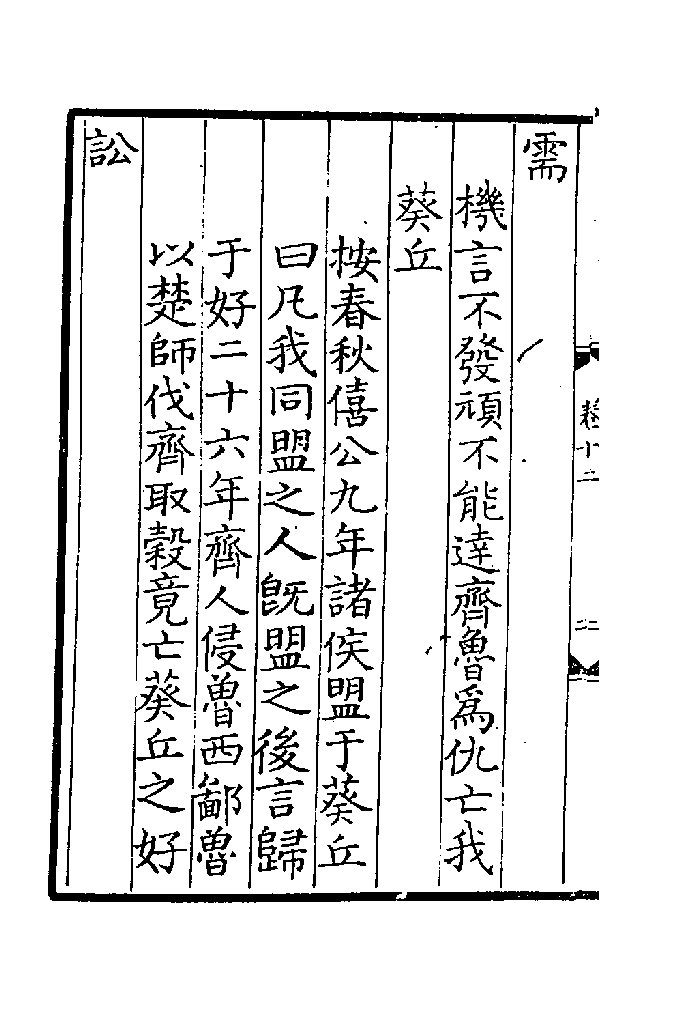 需
機言不發頑不能達齊魯為仇亡我
葵丘
按春秋僖公九年諸侯盟于葵丘
曰凡我同盟之人既盟之後言歸
于好二十六年齊人侵魯西鄙魯
以楚師伐齊取榖竟亡葵丘之好
訟
卷十二